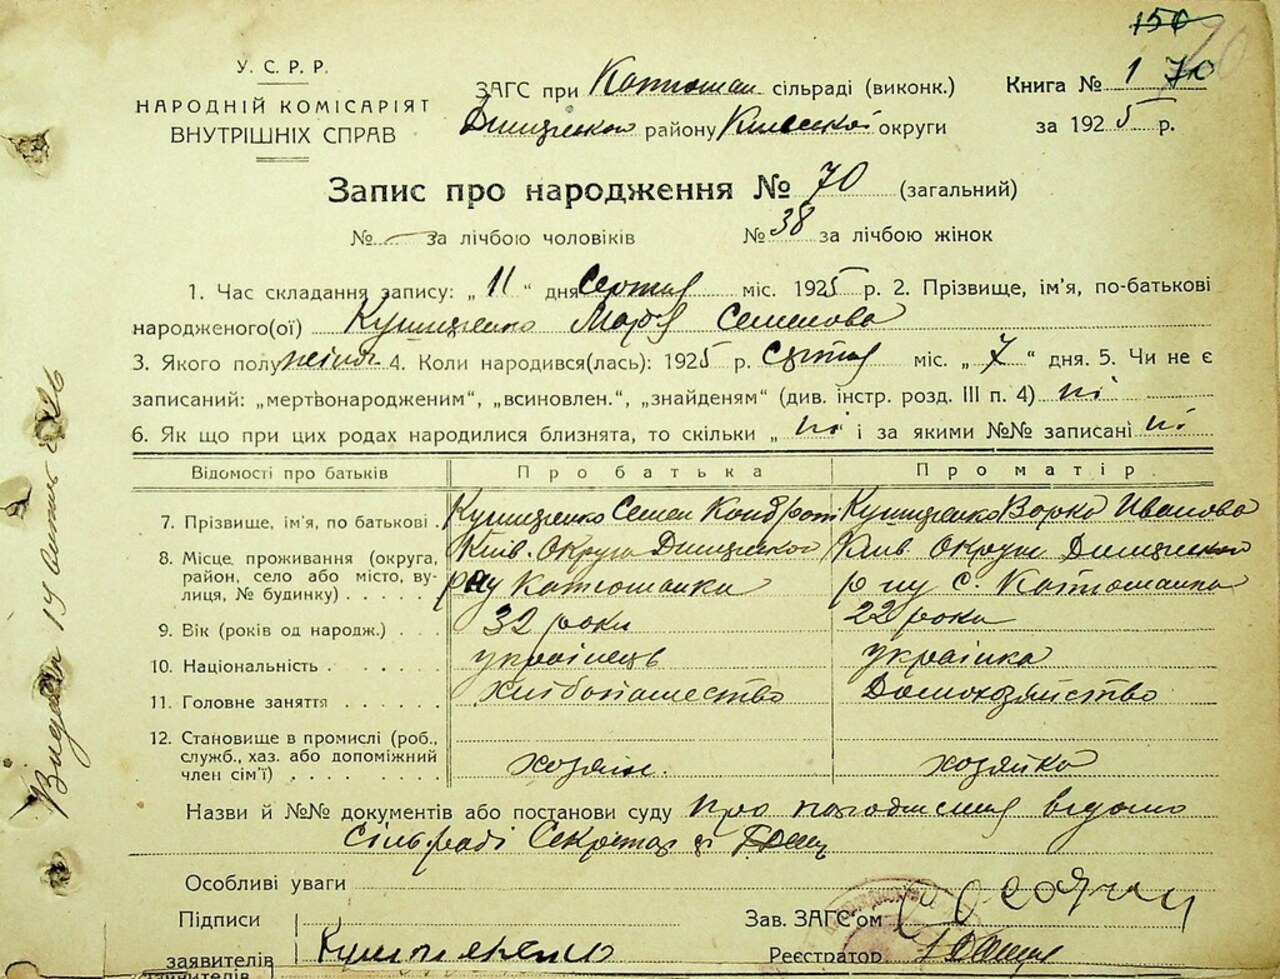 150 70
У. С. Р. Р.
НАРОДНІЙ КОМІСАРІЯТ
ВНУТРІШНІХ СПРАВ
ЗАГС при Катюжан. сільраді (виконк.)
району Київської округи
Книга № 1 70
за 1925 р.
Запис про народження № 70 (загальний)
№ — за лічбою чоловіків № 38 за лічбою жінок
1. Час складання запису: „ 11 “ дня Серпня міс. 1925 р. 2. Прізвище, ім'я, по-батькові
народженого(ої) Кушиценко Марія Семенова
3. Якого полу жіноч. 4. Коли народився(лась): 1925 р. міс. „ 7 “ дня. 5. Чи не є
записаний: „мертвонародженим“, „всиновлен.“, „знайденям“ (див. інстр. розд. III п. 4) ні
6. Як що при цих родах народилися близнята, то скільки „ ні і за якими №№ записані ні
Відомості про батьків Про батька Про матір.
7. Прізвище, ім'я, по батькові . Кушиценко Семен Кондрат Кушиценко Варка Иванова
8. Місце проживання (округа, Київ. Округа Київ. Округи
район, село або місто, ву- р-ну Катюжанка р-ну с. Катюжанка
лиця, № будинку) . . . . .
9. Вік (років од народж.) . . . 32 роки 22 роки
10. Національність . . . . . . українець українка
11. Головне заняття . . . . . . хлібопашество Домохозяйство
12. Становище в промислі (роб.,
служб., хаз. або допоміжний
член сім'ї) . . . . . . . . хозяін. хозяйка
Назви й №№ документів або постанови суду Про народження відомо
сільраді Секретар
Особливі уваги
Підписи Зав. ЗАГС'ом
заявителів Реєстратор
Видан 14